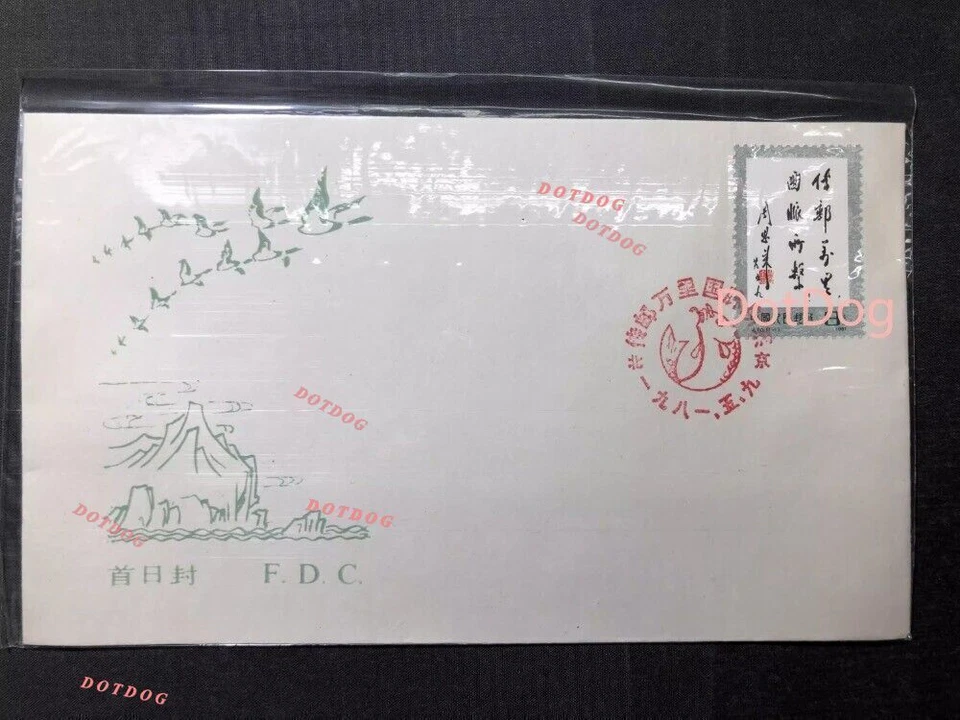 DOTDOG
DOTDOG
传邮万里
国脉所繫
周恩来
DotDog
8
1981
传邮万里国
北京
一九八一.五.九
DOTDOG
DOTDOG
DOTDOG
首日封 F. D. C.
DOTDOG